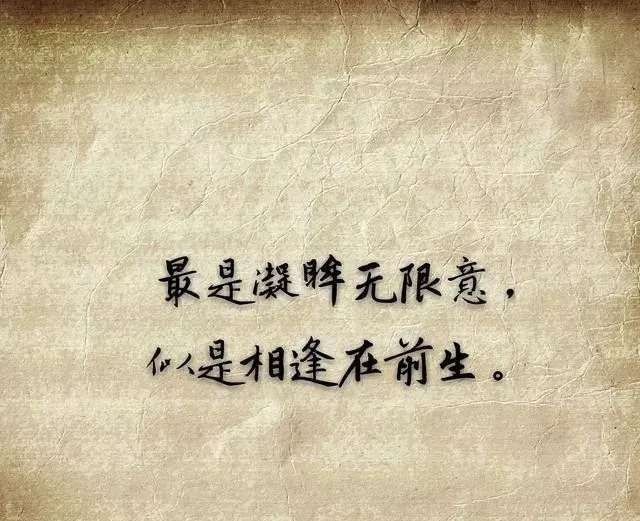 最是凝眸无限意，
似是相逢在前生。